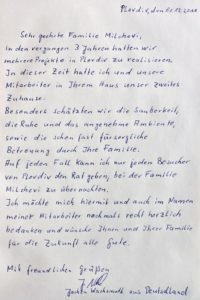 Plovdiv, den
Sehr geehrte Familie Milshevi,
In den vergangen 3 Jahren hatten wir
mehrere Projekte in Plovdiv zu realisieren.
In dieser Zeit hatte ich und unsere
Mitarbeiter in Ihrem Haus unser zweites
Zuhause.
Besonders schätzten wir die Sauberkeit,
die Ruhe und das angenehme Ambiente,
sowie die schon fast fürsorgliche
Betreuung durch Ihre Familie.
Auf jeden Fall kann ich nur jeden Besucher
von Plovdiv den Rat geben, bei der Familie
Milshevi zu übernachten.
Ich möchte mich hiermit und auch im Namen
meiner Mitarbeiter nochmals recht herzlich
bedanken und wünsche Ihnen und Ihrer Familie
für die Zukunft alles Gute.
Mit freundlichen Grüßen
Jochen Wachsmuth aus Deutschland